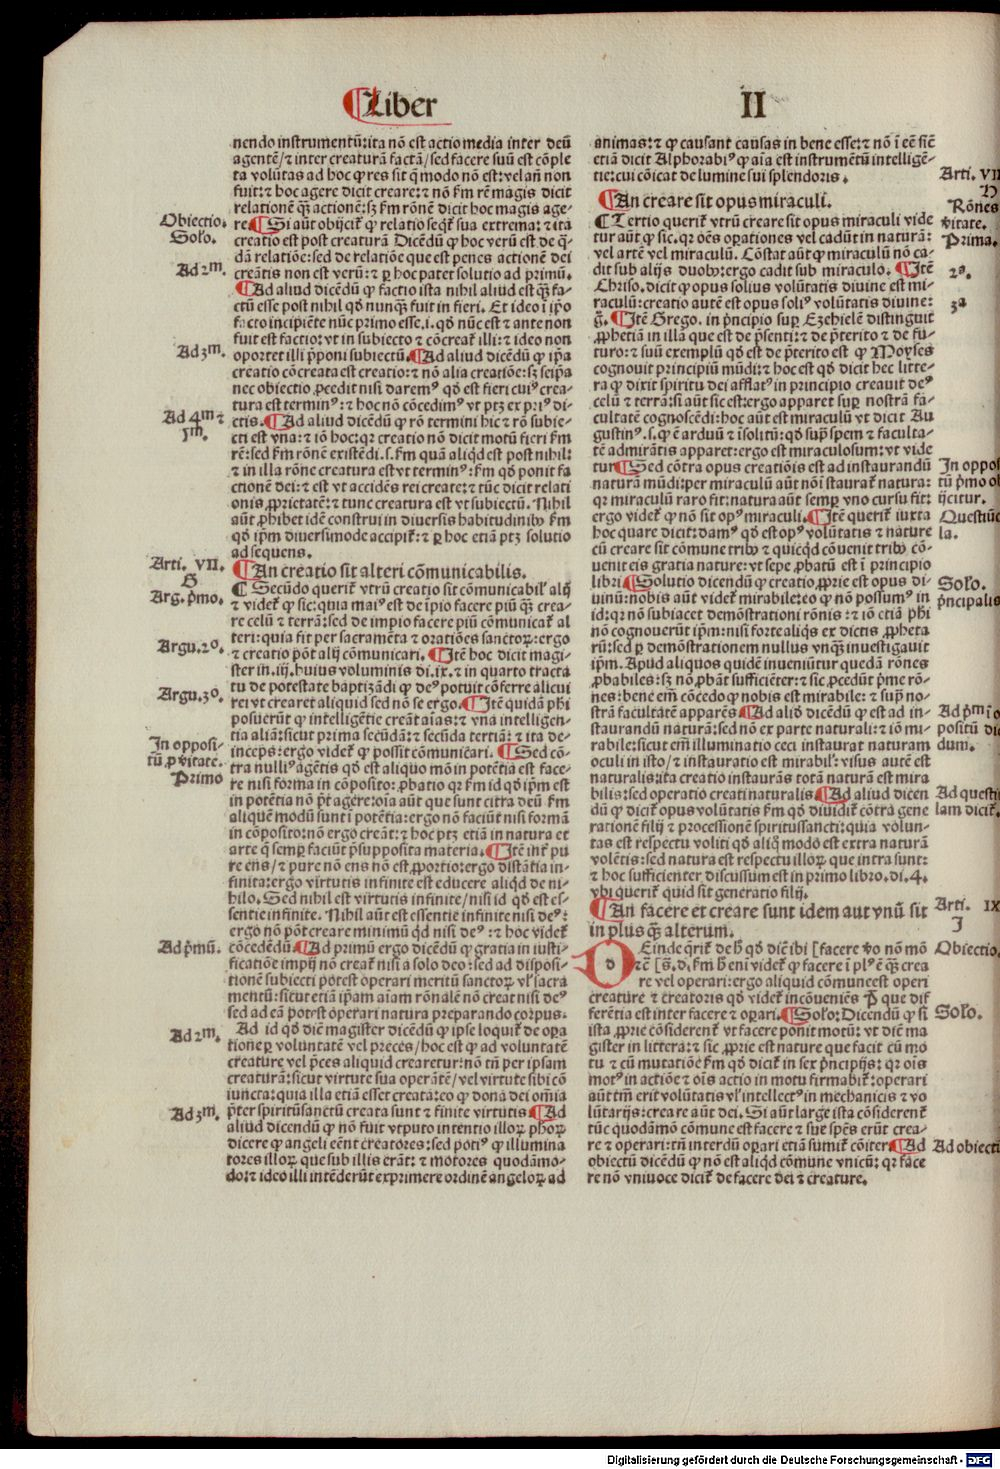 Liber II
nendo instrumentū: ita nō est actio media inter deū
agentē/ ⁊ inter creaturā factā/ sed facere suū est cōple
ta volūtas ad hoc ꝙ res sit q̄ modo nō est: vel añ non
fuit: ⁊ hoc agere dicit creare: ⁊ nō ẜm rē magis dicit
relationē q̄ꝫ actionē: sꝫ ẜm rōnē dicit hoc magis age-
re ¶ Si aūt obijciꝉ ꝙ relatio seqꝉ sua extrema: ⁊ ita
creatio est post creaturā Dicēdū ꝙ hoc verū est de q̄-
dā relatiōe: sed de relatiōe que est penes actionē dei
creātis non est verū: ⁊ ꝑ hoc patet solutio ad primū.
¶ Ad aliud dicēdū ꝙ factio ista nihil aliud est q̄ꝫ fa-
ctū esse post nihil qđ nunq̄ꝫ fuit in fieri. Et ideo ī ip̄o
facto incipiēte nūc primo esse .i. qđ nūc est ⁊ ante non
fuit est factio: vt in subiecto ⁊ cōcreat illi: ⁊ ideo non
oportet illi p̄poni subiectū. ¶ Ad aliud dicēdū ꝙ ip̄a
creatio cōcreata est creatio: ⁊ nō alia creatiōe: sꝫ seip̄a
nec obiectio ꝓcedit nisi daremꝰ qđ est fieri cuiꝰ crea-
tura est terminꝰ: ⁊ hoc nō cōcedimꝰ vt ptꝫ ex priꝰ di-
ctis. ¶ Ad aliud dicēdū ꝙ rō termini hic ⁊ rō subie-
cti est vna: ⁊ iō hoc: qr creatio nō dicit motū fieri ẜm
rē: sed ẜm rōnē existēdi .s. ẜm quā aliqđ est post nihil:
⁊ in illa rōne creatura est vt terminꝰ: ẜm qđ ponit fa
ctionē dei: ⁊ est vt accidēs rei create: ⁊ tūc dicit relati
onis ꝓprietatē: ⁊ tunc creatura est vt subiectū. Nihil
aūt ꝓhibet idē construi in diuersis habitudinibꝰ ẜm
qđ ip̄m diuersimode accipiꝉ: ⁊ ꝑ hoc etiā ptꝫ solutio
ad sequens.
¶ An creatio sit alteri cōmunicabilis.
¶ Secūdo queriꝉ vtrū creatio sit cōmunicabilꝉ alij
⁊ videꝉ ꝙ sic: quia maiꝰ est de īpio facere piū q̄ꝫ crea-
re celū ⁊ terrā: sed de impio facere piū cōmunicaꝉ al
teri: quia fit per sacramēta ⁊ oratiōes sanctoꝝ: ergo
⁊ creatio pōt alij cōmunicari. ¶ Itē hoc dicit magi-
ster in .iij. huius voluminis di. ix. ⁊ in quarto tracta
tu de potestate baptizādi ꝙ deꝰ potuit cōferre alicui
rei vt crearet aliquid sed nō se ergo. ¶ Itē quidā phi
posuerūt ꝙ intelligētie creāt aīas: ⁊ vna intelligen-
tia aliā: sicut prima secūdā: ⁊ secūda tertiā: ⁊ ita de-
inceps: ergo videꝉ ꝙ possit cōmunicari. ¶ Sed cō-
tra nulliꝰ agētis qđ est aliquo mō in potētia est face-
re nisi formā in cōposito: ꝓbatio qr ẜm id qđ ip̄m est
in potētia nō p̄t agere: oīa aūt que sunt citra deū ẜm
aliquē modū sunt ī potētia: ergo nō faciūt nisi formā
in cōposito: nō ergo creāt: ⁊ hoc ptꝫ etiā in natura et
arte q̄ semꝑ faciūt p̄supposita materia. ¶ Itē inꝉ pu
re ens/ ⁊ pure nō ens nō est ꝓportio: ergo distātia in-
finita: ergo virtutis infinite est educere aliqđ de ni-
hilo. Sed nihil est virtutis infinite/ nisi id qđ est es-
sentie infinite. Nihil aūt est essentie infinite nisi deꝰ:
ergo nō pōt creare minimū qđ nisi deꝰ: ⁊ hoc videꝉ
cōcedēdū. ¶ Ad primū ergo dicēdū ꝙ gratia in iusti-
ficatiōe impij nō creaꝉ nisi a solo deo: sed ad disposi-
tionē subiecti potest operari meritū sanctoꝝ vꝉ sacra
mentū: sicut etiā ip̄am aīam rōnalē nō creat nisi deꝰ
sed ad eā potest operari natura preparando corpus.
Ad id qđ diē magister dicēdū ꝙ ipse loquiꝉ de oꝑa
tione ꝑ voluntatē vel preces/ hoc est ꝙ ad voluntatē
creature vel p̄ces aliquid crearetur: nō tñ per ipsam
creaturā: sicut virtute sua operātē/ vel virtute sibi cō
iuncta: quia illa etiā esset creata: eo ꝙ dona dei om̄ia
p̄ter spiritūsanctū creata sunt ⁊ finite virtutis ¶ Ad
aliud dicendū ꝙ nō fuit vtputo intentio illoꝝ phoꝝ
dicere ꝙ angeli eēnt creatores: sed potiꝰ ꝙ illumina
tores illoꝝ que sub illis erāt: ⁊ motores quodāmo-
do: ⁊ ideo illi intēderūt exprimere ordinē angeloꝝ ad
Obiectio.
Solo.
Ad 2m.
Ad 3m.
Ad 4m ⁊
5m.
Arti. VII.
G
Arg. p̄mo.
Argu. 2o.
Argu. 3o.
In opposi-
tū ꝑ vitate.
Primo
Ad p̄mū.
Ad 2m.
Ad 3m.
animas: ⁊ ꝙ causant causas in bene esse: ⁊ nō ī eē sic̄
etiā dicit Alphorabiꝰ ꝙ aīa est instrumētū intelligē-
tie: cui cōicat de lumine sui splendoris.
¶ An creare sit opus miraculi.
¶ Tertio queriꝉ vtrū creare sit opus miraculi vide
tur aūt ꝙ sic. qr oēs oꝑationes vel cadūt in naturā:
vel artē vel miraculū. Cōstat aūt ꝙ miraculū nō ca-
dit sub alijs duobꝰ: ergo cadit sub miraculo. ¶ Itē
Chriso. dicit ꝙ opus solius volūtatis diuine est mi-
raculū: creatio autē est opus soliꝰ volūtatis diuine:
g̃. ¶ Itē Grego. in p̄ncipio suꝑ Ezehielē distinguit
ꝓphetiā in illā que est de p̄senti: ⁊ de p̄terito ⁊ de fu-
turo: ⁊ suū exemplū qđ est de p̄terito est ꝙ Moyses
cognouit principiū mūdi: ⁊ hoc est qđ dicit hec litte-
ra ꝙ dixit spiritu dei afflatꝰ in principio creauit deꝰ
celū ⁊ terrā: si aūt sic est: ergo apparet suꝑ nostrā fa-
cultatē cognoscēdi: hoc aūt est miraculū vt dicit Au
gustinꝰ .s. ꝙ ē arduū ⁊ īsolitū: qđ sup̄ spem ⁊ faculta-
tē admirātis apparet: ergo est miraculosum: vt vide
tur ¶ Sed cōtra opus creatiōis est ad instaurandū
naturā mūdi: per miraculū aūt nō īstauraꝉ natura:
qr miraculū raro fit: natura aūt semꝑ vno cursu fit:
ergo videꝉ ꝙ nō sit opꝰ miraculi. ¶ Itē queriꝉ iuxta
hoc quare dicit: damꝰ qđ est opꝰ volūtatis ⁊ nature
cū creare sit cōmune tribꝰ ⁊ quicqđ cōuenit tribꝰ cō-
uenit eis gratia nature: vt sepe ꝓbatū est ī principio
libri. ¶ Solutio dicendū ꝙ creatio ꝓprie est opus di-
uinū: nobis aūt videꝉ mirabile: eo ꝙ nō possumꝰ in
id: qr nō subiacet demōstrationi rōnis: ⁊ iō etiā phi
nō cognouerūt ip̄m: nisi forte aliqs ex dictis ꝓpheta
rū: sed ꝑ demōstrationem nullus vnq̄ꝫ inuestigauit
ip̄m. Apud aliquos quidē inueniūtur quedā rōnes
ꝓbabiles: sꝫ nō ꝓbāt sufficiēter: ⁊ sic ꝓcedūt p̄me rō-
nes: bene em̄ cōcedo ꝙ nobis est mirabile: ⁊ sup̄ no-
strā facultatē apparēs ¶ Ad aliđ dicēdū ꝙ est ad in-
staurandū naturā: sed nō ex parte naturali: ⁊ iō mi-
rabile: sicut em̄ illuminatio ceci instaurat naturam
oculi in isto/ ⁊ instauratio est mirabilꝉ: visus autē est
naturalis: ita creatio instaurās totā naturā est mira
bilis: sed operatio creati naturalis. ¶ Ad aliud dicen
dū ꝙ diciꝉ opus volūtatis ẜm qđ diuidiꝉ cōtra gene
rationē filij ⁊ processionē spiritussancti: quia volun-
tas est respectu voliti qđ aliq̄ modō est extra naturā
volētis: sed natura est respectu illoꝝ que intra sunt:
⁊ hoc sufficienter discussum est in primo libro. di. 4.
vbi queriꝉ quid sit generatio filij.
¶ An facere et creare sunt idem aut vnū sit
in plus q̄ꝫ alterum.
Deinde q̄riꝉ de hͦ qđ diē ibi [facere ꝟo nō mō
rē [s̄. d. ẜm hͦ eni videꝉ ꝙ facere ī plꝰ ē q̄ꝫ crea
re vel operari: ergo aliquid cōmune est operi
creature ⁊ creatoris qđ videꝉ incōueniēs P̄ que dif
ferētia est inter facere ⁊ oꝑari. ¶ Solo: Dicendū ꝙ si
ista ꝓprie cōsiderenꝉ vt facere ponit motū: vt diē ma
gister in littera: ⁊ sic ꝓprie est nature que facit cū mo
tu ⁊ cū mutatiōe ẜm qđ diciꝉ in sex p̄ncipijs: qr oīs
motꝰ in actiōe ⁊ oīs actio in motu firmabiꝉ: operari
aūt tm̄ erit volūtatis vꝉ intellectꝰ in mechanicis ⁊ vo
lūtarijs: creare aūt dei. Si aūt large ista cōsiderenꝉ
tūc quodāmō cōmune est facere ⁊ sue sp̄es erūt crea-
re ⁊ operari: tñ interdū oꝑari etiā sumiꝉ cōiter. ¶ Ad
obiectū dicēdū ꝙ nō est aliqđ cōmune vnicū: qr face
re nō vniuoce diciꝉ de facere dei ⁊ creature.
Arti. VII
Rōnes
vitate.
Prima.
2a.
3a
In oppo
tū p̄mo ob
ijcitur.
Questiūc
la.
Solo.
p̄ncipalis
Ad p̄m ī o
positū dic
dum.
Ad questi
lam diciꝉ.
Arti. IX
I
Obiectio.
Solo.
Ad obiectū
Digitalisierung gefördert durch die Deutsche Forschungsgemeinschaft - DFG